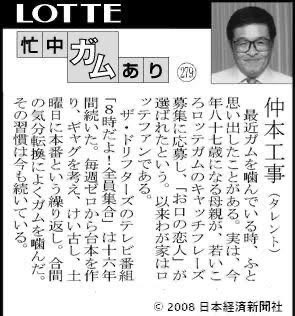 LOTTE
忙中ガムあり 279
仲本工事(タレント)
最近ガムを噛んでいる時、ふと
思い出したことがある。実は、今
年八十七歳になる母親が、若いこ
ろロッテガムのキャッチフレーズ
募集に応募し、「お口の恋人」が
選ばれたという。以来わが家はロ
ッテファンである。
ザ・ドリフターズのテレビ番組
「8時だよ!全員集合」は十六年
間続いた。毎週ゼロから台本を作
り、ギャグを考え、けい古し、土
曜日に本番という繰り返し。合間
の気分転換によくガムを噛んだ。
その習慣は今も続いている。
© 2008 日本経済新聞社